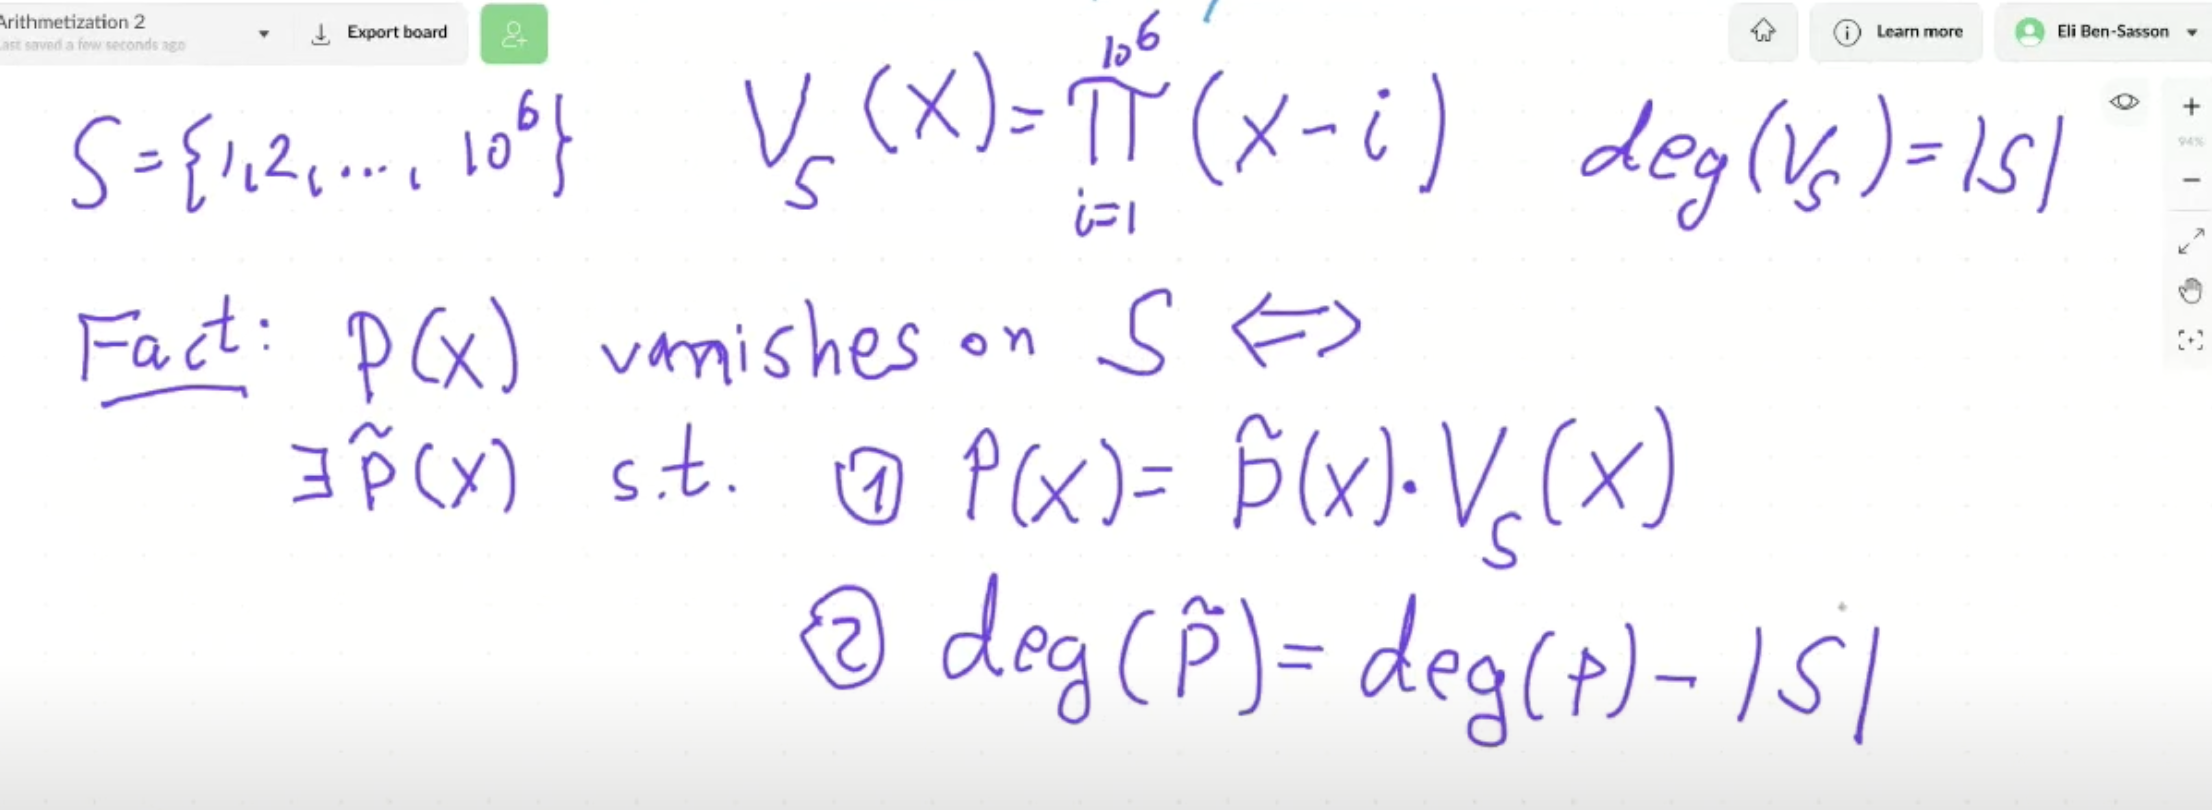 Arithmetization 2
Last saved a few seconds ago
Export board
Learn more
Eli Ben-Sasson
S={1,2,...,10⁶} V_S(X)=∏_{i=1}^{10⁶}(x-i) deg(V_S)=|S|
94%
Fact: P(X) vanishes on S ⟺
∃ p̃(X) s.t. ① P(X)= p̃(X)·V_S(X)
② deg(p̃)= deg(p)-|S|